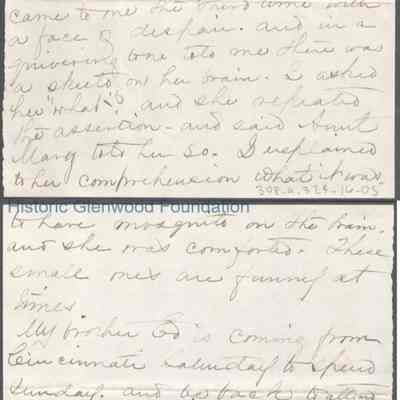 came to me the third time with
a face of despair. and in a
quivering tone told me there was
a skeeto on her brain. I asked
her "what"? and she repeated
the assertion. and said Aunt
Mary told her so. I explained
to her comprehension what it was
308.a.325-16-05
Historic Glenwood Foundation
to have mosquito on the brain.
and she was comforted. These
small ones are funny at
times
My brother Ed is coming from
Cincinnati Saturday to spend
Sunday. and go back to attend